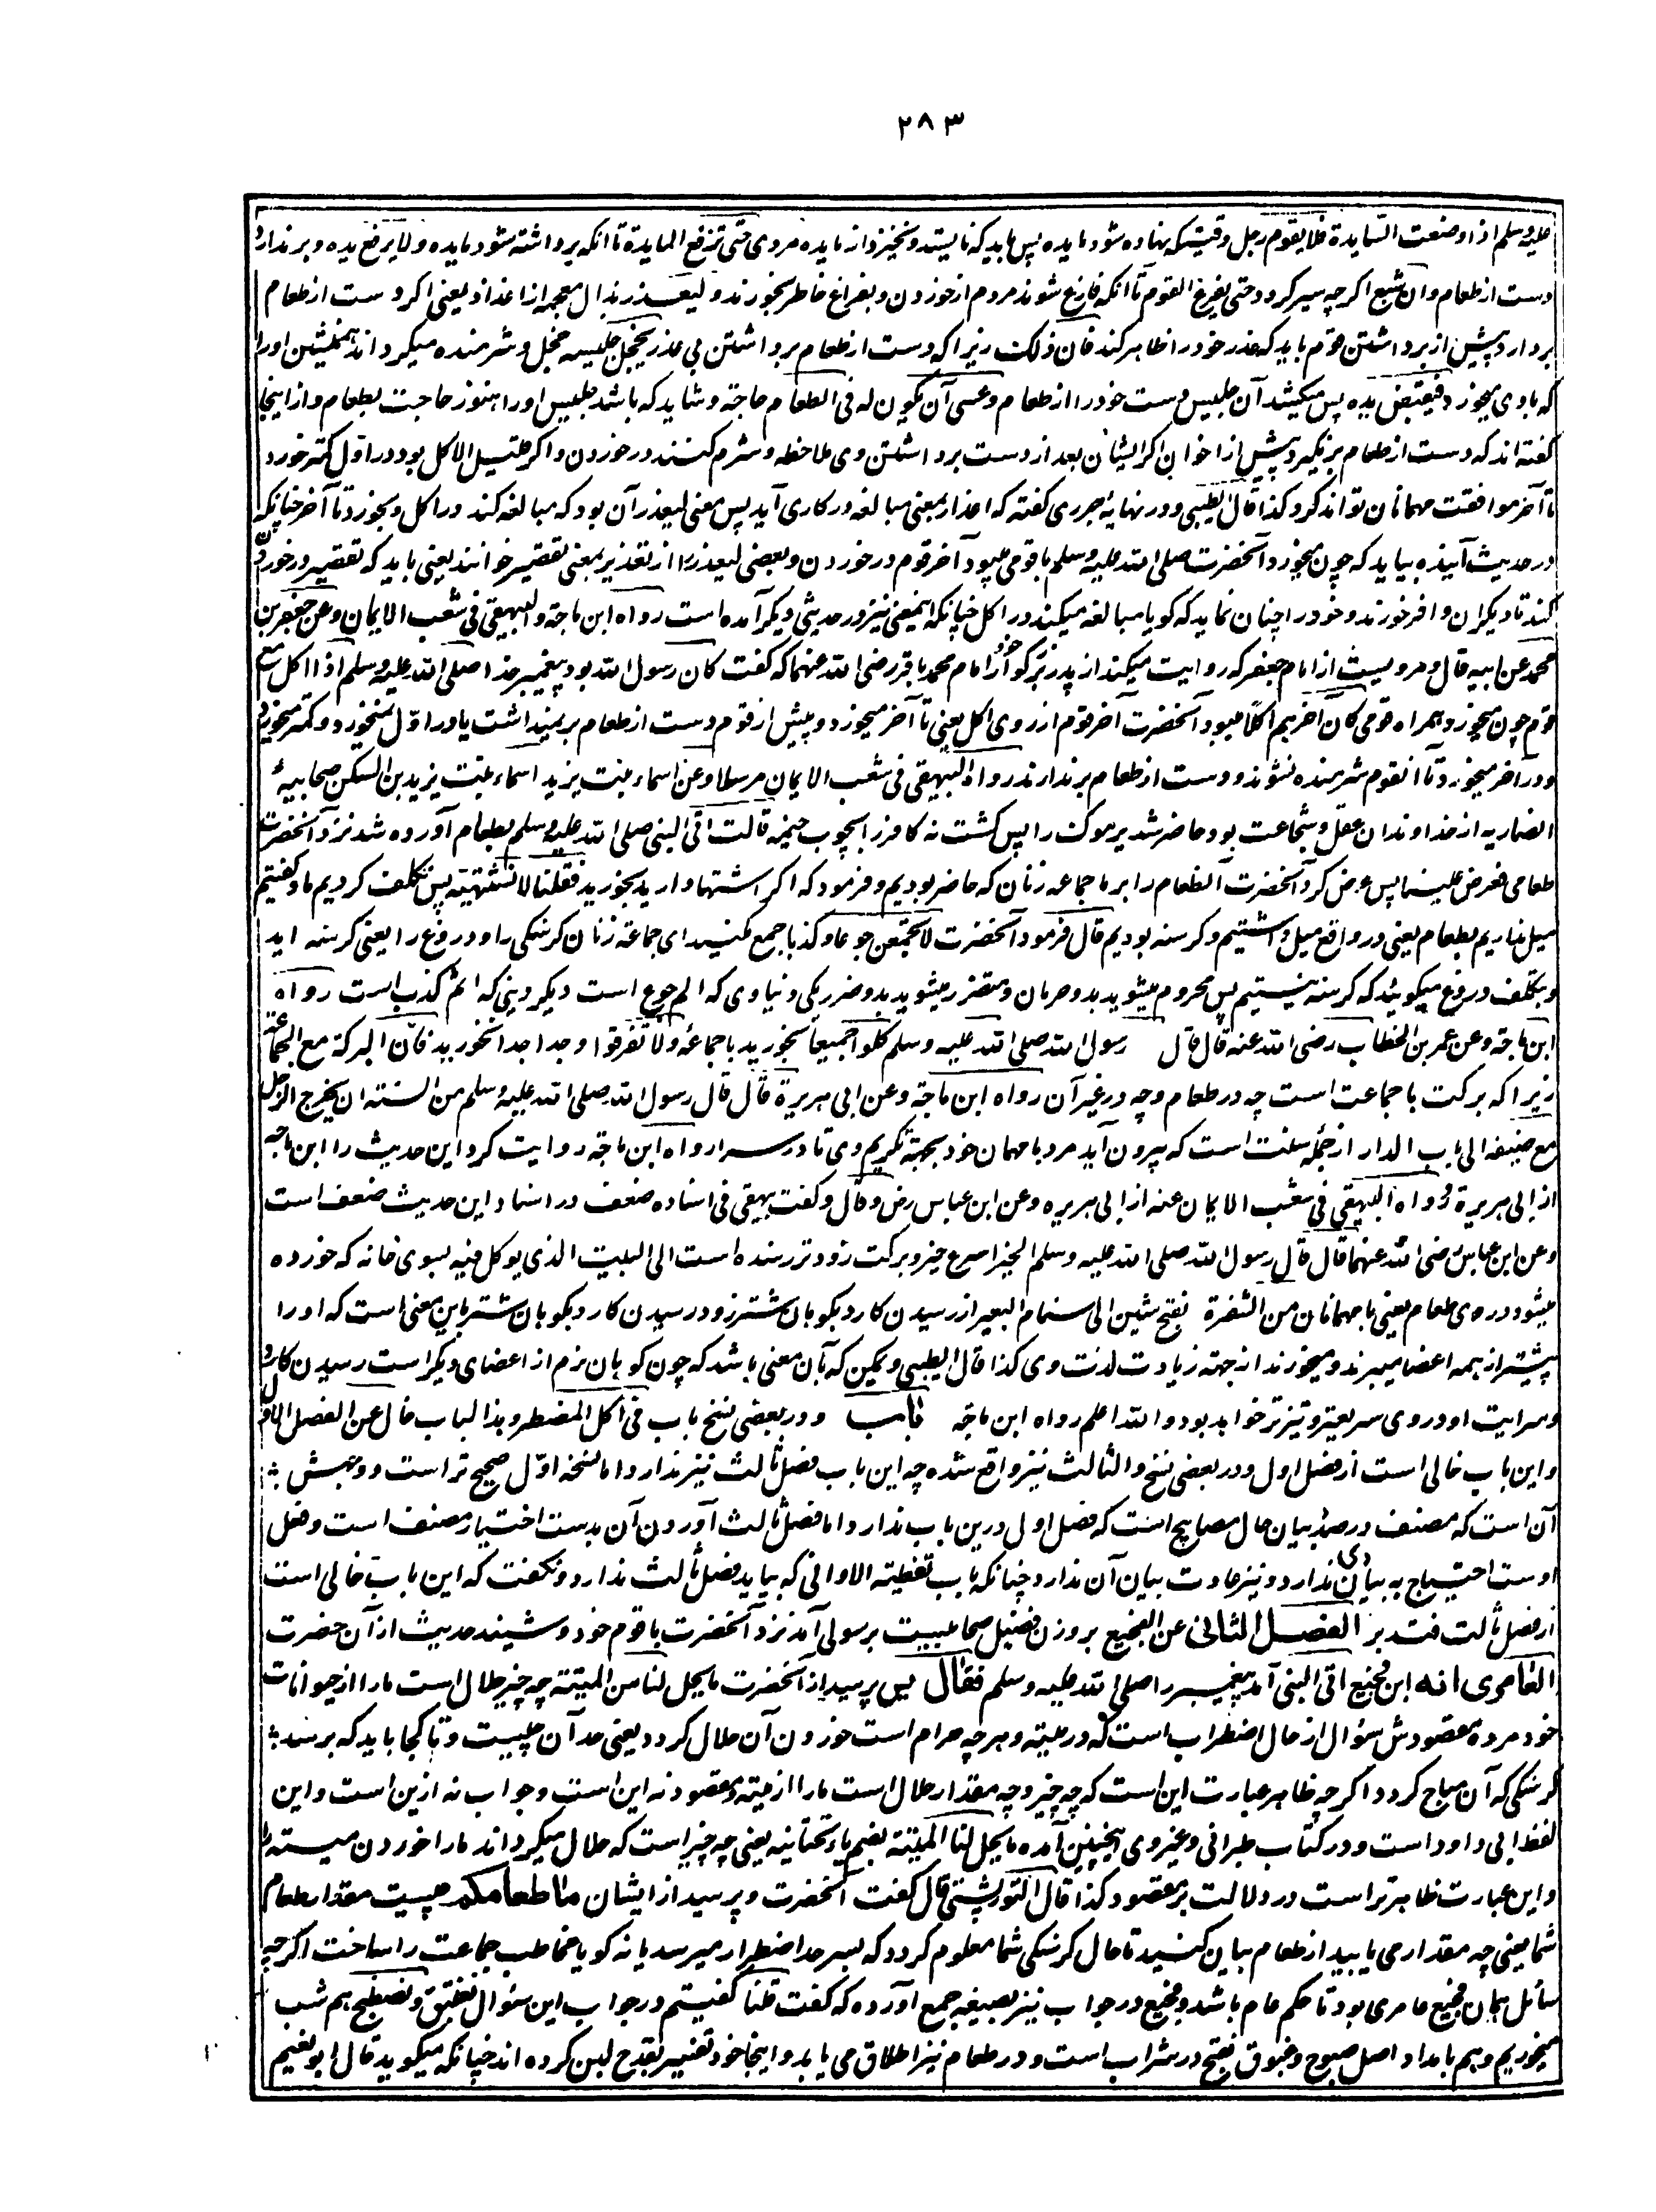 ۲۸۳
علیه وسلم اذا وضعت المایدة فلا یقوم رجل وقتیکه نهاده شود مایده پس باید که نایستد و نخیزد از مایده مردی حتی ترفع المایدة تا آنکه برداشته شود مایده ولا یرفع یده و برندارد
دست از طعام وان شبع اکرچه سیر کردد حتی یفرغ القوم تا آنکه فارغ شوند مردم از خوردن و بفراغ خاطر بخورند ولیعذر بذال معجمه از اعذار یعنی اکر دست از طعام
بردارد پیش از برداشتن قوم باید که عذر خود را ظاهر کند فان ذلک زیرا که دست از طعام برداشتن بی عذر یخجل جلیسه خجل و شرمنده میکرداند همنشین او را
که با وی میخورد فیقبض یده پس میکشد آن جلیس دست خود را از طعام وعسی آن یکون له فی الطعام حاجة و شاید که باشد جلیس او را هنوز حاجت بطعام و از اینجا
کفته اند که دست از طعام برنکیرد پیش از اخوان اکر ایشان بعد از دست برداشتن وی ملاحظه و شرم کنند در خوردن و اکر قلیل الاکل بود در اول کمتر خورد
تا آخر موافقت مهمانان تواند کرد کذا قال الطیبی و در نهایهٔ جزری کفته که اعذار بمعنی مبالغه در کاری آید پس معنی لیعذر آن بود که مبالغه کند در اکل و بخورد تا آخر چنانکه
در حدیث آینده بیاید که چون میخورد آنحضرت صلی الله علیه وسلم با قومی میبود آخر قوم در خوردن و بعضی لیعذر را از تعذیر بمعنی تقصیر خوانند یعنی باید که تقصیر در خوردن
کند تا دیکران وافر خورند و خود را چنان نماید که کویا مبالغه میکند در اکل چنانکه اینمعنی نیز در حدیثی دیکر آمده است رواه ابن ماجة والبیهقی فی شعب الایمان وعن جعفر بن
محمد عن ابیه قال و مرویست از امام جعفر که روایت میکند از پدر بزرکوار خود امام محمد باقر رضی الله عنهما که کفت کان رسول الله بود پیغمبر خدا صلی الله علیه وسلم اذا اکل مع
قوم چون میخورد بهمراه قومی کان آخرهم اکلا میبود آنحضرت آخر قوم از روی اکل یعنی تا آخر میخورد و پیش از قوم دست از طعام برنمیداشت یا در اول نمیخورد و کمتر میخورد
و در آخر میخورد تا آنقوم شرمنده نشوند و دست از طعام برندارند رواه البیهقی فی شعب الایمان مرسلا وعن اسماء بنت یزید اسماء بنت یزید بن السکن صحابیهٔ
انصاریه از خداوندان عقل و شجاعت بود حاضر شد یرموک را پس کشت نه کافر را بچوب خیمه قالت اتی النبی صلی الله علیه وسلم بطعام آورده شد نزد آنحضرت
طعامی فعرض علینا پس عرض کرد آنحضرت آنطعام را بر ما جماعه زنان که حاضر بودیم و فرمود که اکر اشتها دارید بخورید فقلنا لا نشتهیه پس تکلف کردیم ما و کفتیم
میل نداریم بطعام یعنی در واقع میل داشتیم و کرسنه بودیم قال فرمود آنحضرت لا تجتمعن جوعا وکذبا جمع مکنید ای جماعه زنان کرسنکی را و دروغ را یعنی کرسنه اید
و بتکلف دروغ میکوئید که کرسنه نیستیم پس محروم میشوید بدو حرمان و متضرر میشوید بدو ضرر یکی دنیاوی که الم جوع است دیکر دینی که اثم کذب است رواه
ابن ماجة وعن عمر بن الخطاب رضی الله عنه قال قال رسول الله صلی الله علیه وسلم کلوا جمیعا بخورید با جماعه ولا تفرقوا و جدا جدا نخورید فان البرکة مع الجماعة
زیرا که برکت با جماعت است چه در طعام و چه در غیر آن رواه ابن ماجة وعن ابی هریرة قال قال رسول الله صلی الله علیه وسلم من السنة ان یخرج الرجل
مع ضیفه الی باب الدار از جملهٔ سنت است که بیرون آید مرد با مهمان خود بجهة تکریم وی تا در سرا رواه ابن ماجة روایت کرد این حدیث را ابن ماجه
از ابی هریرة و رواه البیهقی فی شعب الایمان عنه از ابی هریره وعن ابن عباس رض وقال و کفت بیهقی فی اسناده ضعف در اسناد این حدیث ضعف است
وعن ابن عباس رضی الله عنهما قال قال رسول الله صلی الله علیه وسلم الخیر اسرع خیر و برکت زودتر رسنده است الی البیت الذی یوکل فیه بسوی خانه که خورده
میشود در وی طعام یعنی با مهمانان من الشفرة بفتح شین الی سنام البعیر از رسیدن کارد بکوهان شتر زود رسیدن کارد بکوهان شتر باین معنی است که او را
پیشتر از همه اعضا میبرند و میخورند از جهة زیادت لذت وی کذا قال الطیبی و یمکن که بآن معنی باشد که چون کوهان نرم از اعضای دیکر است رسیدن کارد
و سرایت او در وی سریعتر و تیزتر خواهد بود والله اعلم رواه ابن ماجه باب و در بعضی نسخ باب فی اکل المضطر وهذا الباب خال عن الفصل الاول
و این باب خالی است از فصل اول و در بعضی نسخ والثالث نیز واقع شده چه این باب فصل ثالث نیز ندارد اما نسخه اول صحیح تر است و وجهش
آن است که مصنف در صدد بیان حال مصابیح است که فصل اول درین باب ندارد اما فصل ثالث آوردن آن بدست اختیار مصنف است و فعل
اوست احتیاج به بیان ندارد و نیز عادت بیان آن ندارد چنانکه باب تغطیة الاوانی که بیاید فصل ثالث ندارد و نکفت که این باب خالی است
از فصل ثالث فتدبر الفصل الثانی عن الفجیع بروزن فضیل صحابیست برسولی آمد نزد آنحضرت با قوم خود و شنیند حدیث از آن حضرت
العامری انه ابن فجیع اتی النبی آمد پیغمبر را صلی الله علیه وسلم فقال پس پرسید از آنحضرت ما یحل لنا من المیتة چه چیز حلال است ما را از حیوانات
خود مرده مقصودش سؤال از حال اضطراب است که در میته و هر چه حرام است خوردن آن حلال کردد یعنی حد آن چیست و تا کجا باید که برسد
کرسنکی که آن مباح کردد اکرچه ظاهر عبارت این است که چه چیز و چه مقدار حلال است ما را از میته و مقصود نه این است و جواب نه ازین است و این
لفظ ابی داود است و در کتاب طبرانی و غیر وی همچنین آمده ما یحل لنا المیتة بضم یاء تحتانیه یعنی چه چیز است که حلال میکرداند ما را خوردن میته را
و این عبارت ظاهرتر است در دلالت بر مقصود کذا قال التورپشتی قال کفت آنحضرت و پرسید از ایشان ما طعامکم چیست مقدار طعام
شما یعنی چه مقدار می یابید از طعام بیان کنید تا حال کرسنکی شما معلوم کردد که بسر حد اضطرار میرسد یا نه کویا مخاطب جماعت را ساخت اکرچه
سائل همان فجیع عامری بود تا حکم عام باشد و فجیع در جواب نیز بصیغه جمع آورده که کفت قلنا کفتیم در جواب این سؤال نغتبق ونصطبح هم شب
میخوریم و هم بامداد اصل صبوح و غبوق بفتح در شراب است و در طعام نیز اطلاق می یابد و اینجا خود تفسیر بقدح لبن کرده اند چنانکه میکوید قال ابو نعیم